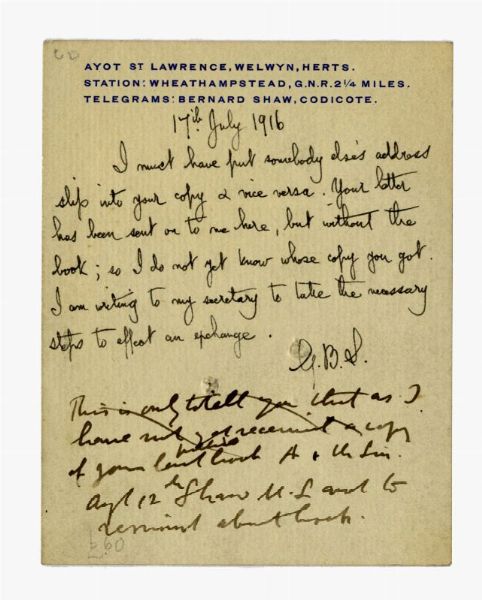 AYOT ST LAWRENCE, WELWYN, HERTS.
STATION: WHEATHAMPSTEAD, G.N.R. 2¼ MILES.
TELEGRAMS: BERNARD SHAW, CODICOTE.
17th July 1916
I must have put somebody else's address
slip into your copy & vice versa. Your letter
has been sent on to me here, but without the
book; so I do not yet know whose copy you got.
I am writing to my secretary to take the necessary
steps to effect an exchange.
G.B.S.
This is only to tell you that as I
have not yet received a copy
of your book A & the
12th Shaw and to
about book.